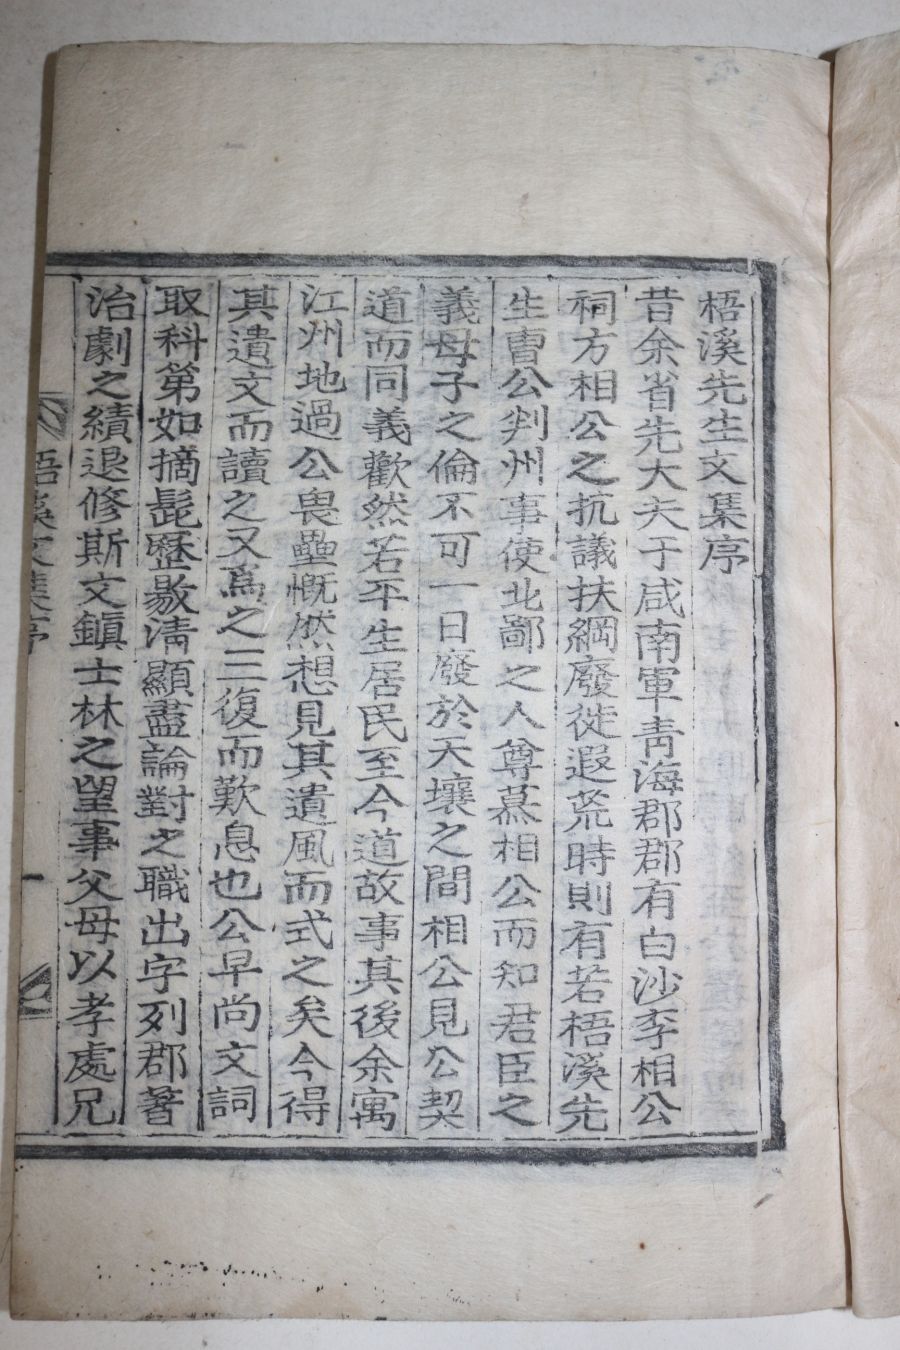 梧溪先生文集序
昔余省先大夫于咸南軍靑海郡郡有白沙李相公
祠方相公之抗議扶綱廢徙遐荒時則有若梧溪先
生曺公判州事使北鄙之人尊慕相公而知君臣之
義母子之倫不可一日廢於天壤之間相公見公契
道而同義歡然若平生居民至今道故事其後余寓
江州地過公畏壘慨然想見其遺風而式之矣今得
其遺文而讀之又爲之三復而歎息也公早尚文詞
取科第如摘髭歷敭淸顯盡論對之職出宰列郡著
治劇之績退修斯文鎭士林之望事父母以孝處兄
梧溪文集序
一